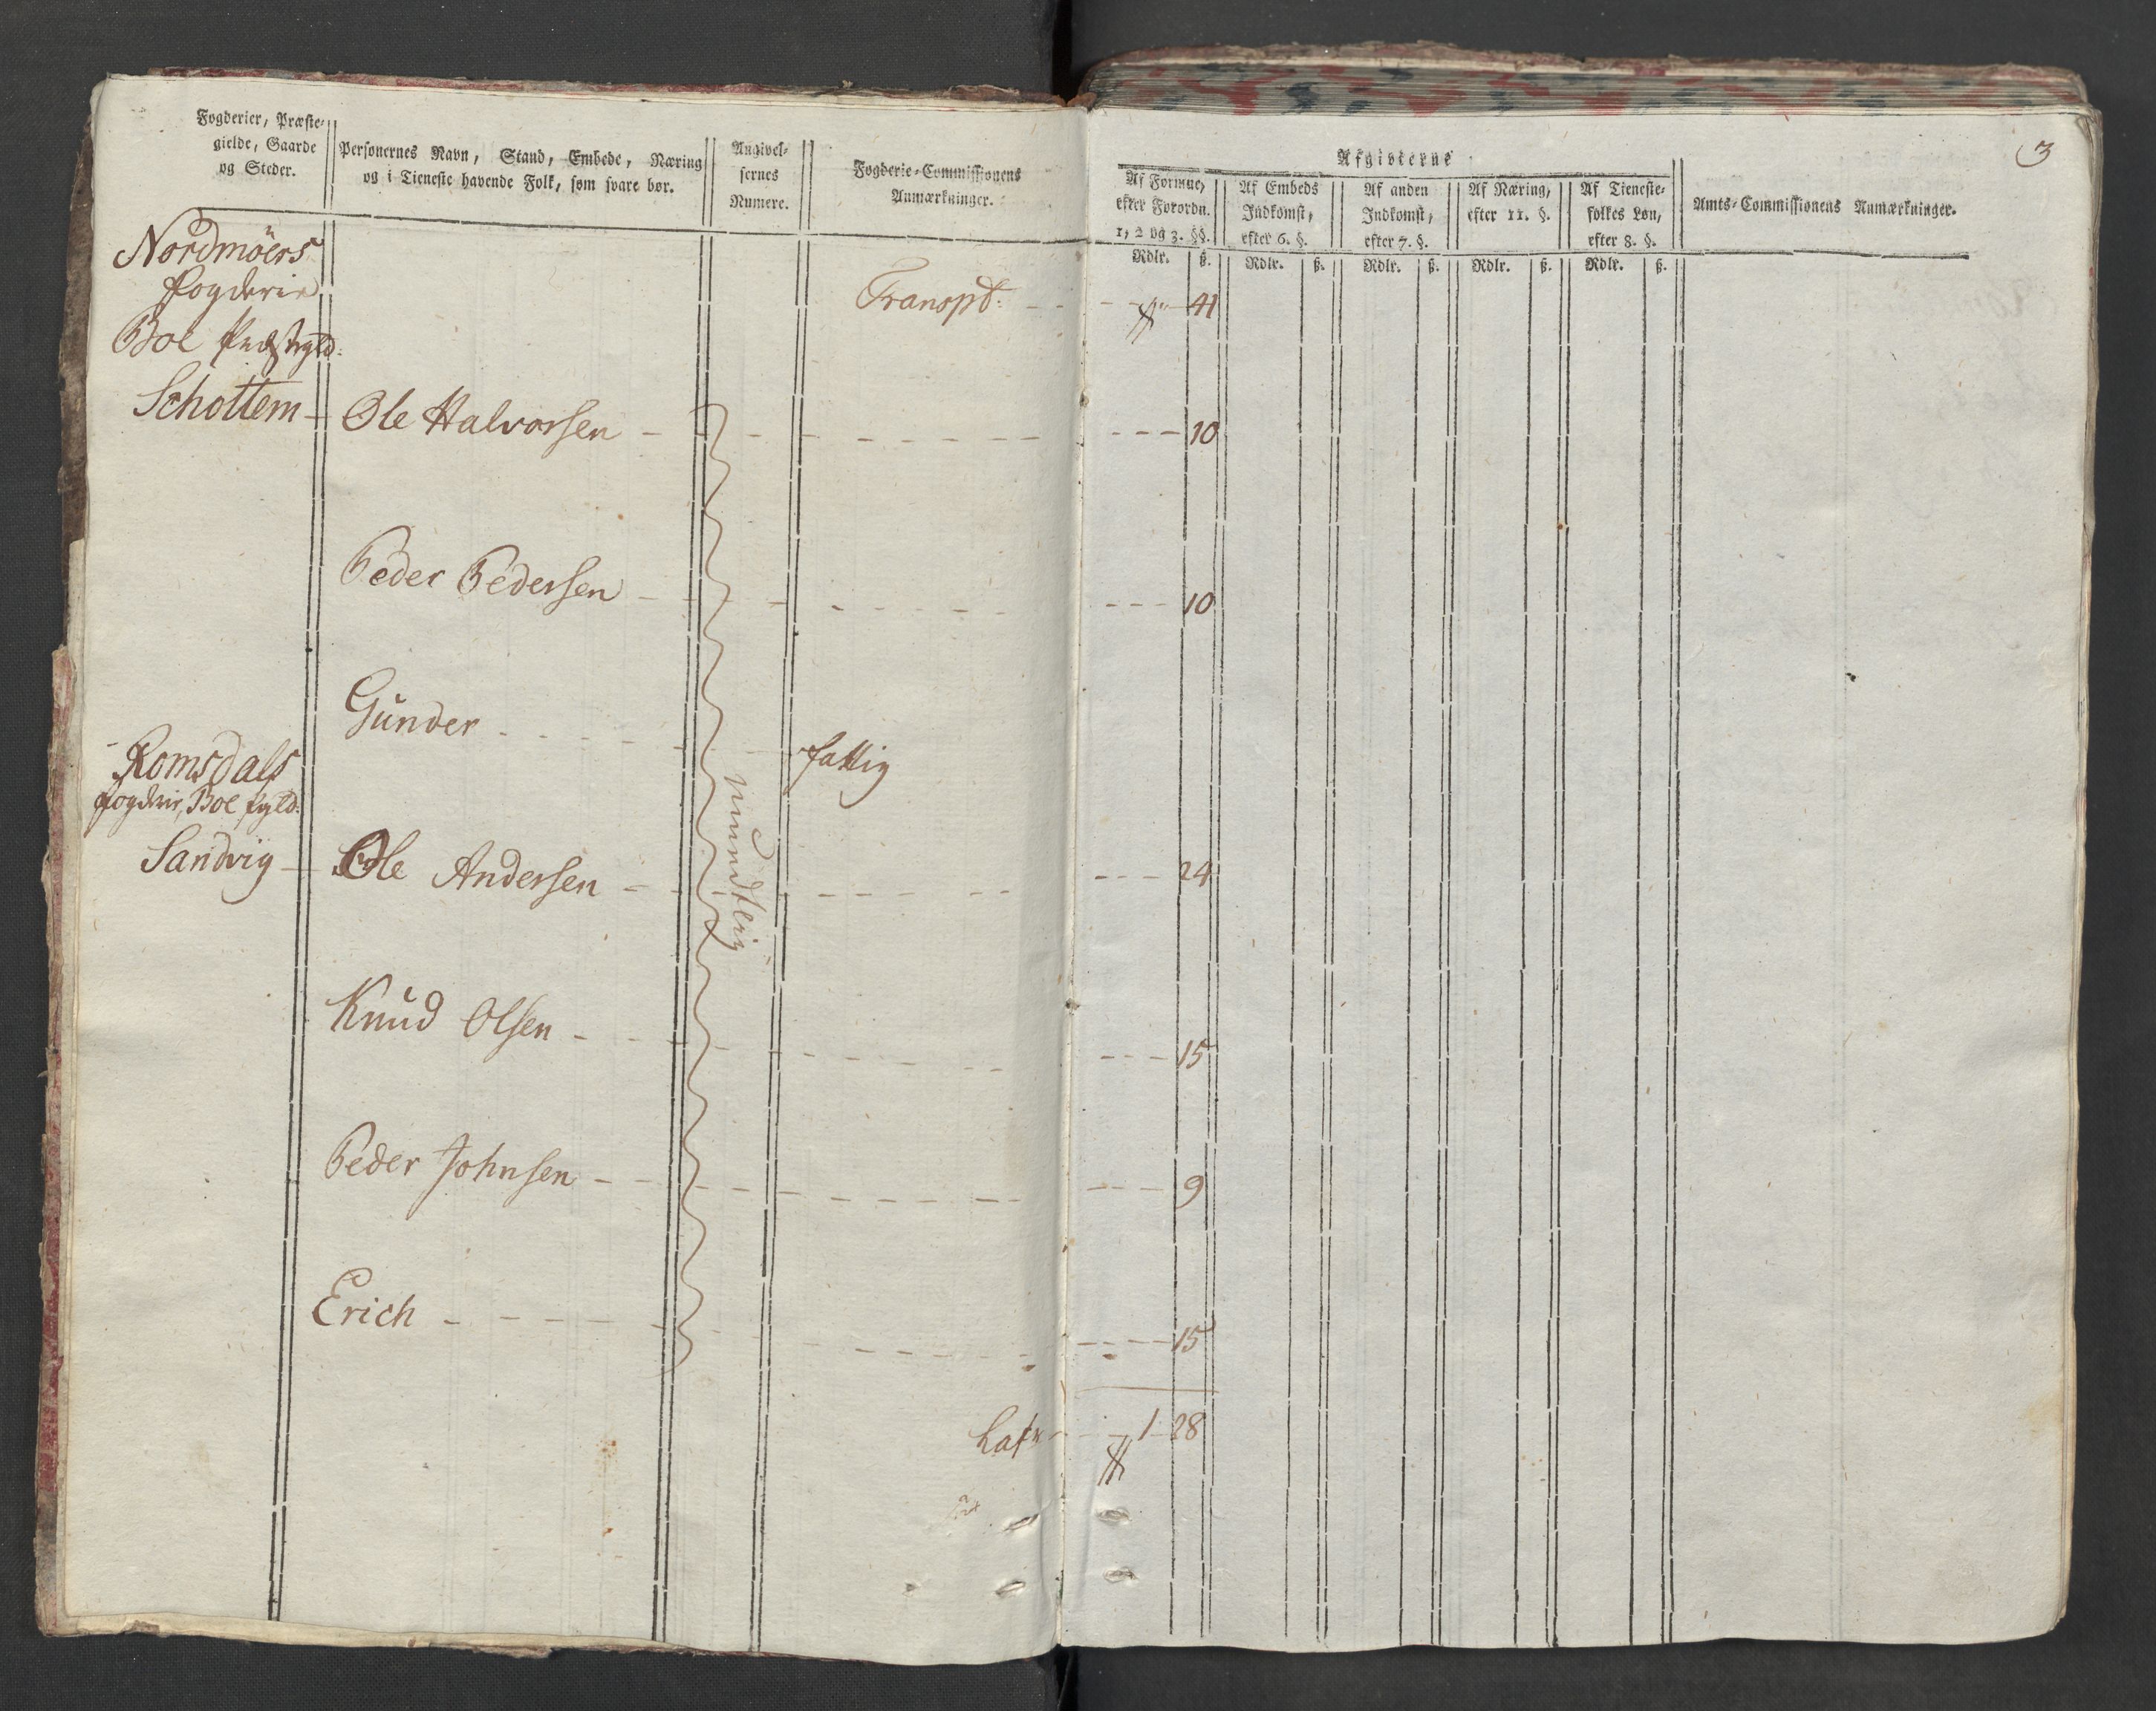 3
Fogderier, Præste-
gielde, Gaarde
og Steder.
Personernes Navn, Stand, Embede, Næring
og i Tieneste havende Folk, som svare bør.
Angivel-
sernes
Numere.
Fogderie-Commissionens
Anmærkninger.
Afgivterne
Af Formue,
efter Forordn.
1, 2 og 3. §§.
Af Embeds
Indkomst,
efter 6. §.
Af anden
Indkomst,
efter 7. §.
Af Næring,
efter 11. §.
Af Tieneste-
folkes Løn,
efter 8. §.
Amts-Commissionens Anmærkninger.
Rdlr. ß. Rdlr. ß. Rdlr. ß. Rdlr. ß. Rdlr. ß.
Nordmöers
Fogderie
Transpt: 41
Boe
Schottem Ole Halvorsen 10
Peder Pedersen 10
Gunder fattig
Romsdals
fogderie, Boe pgld:
Sandvig Ole Andersen 24
mundtlig
Knud Olsen 15
Peder Johnsen 9
Erich 15
1 28